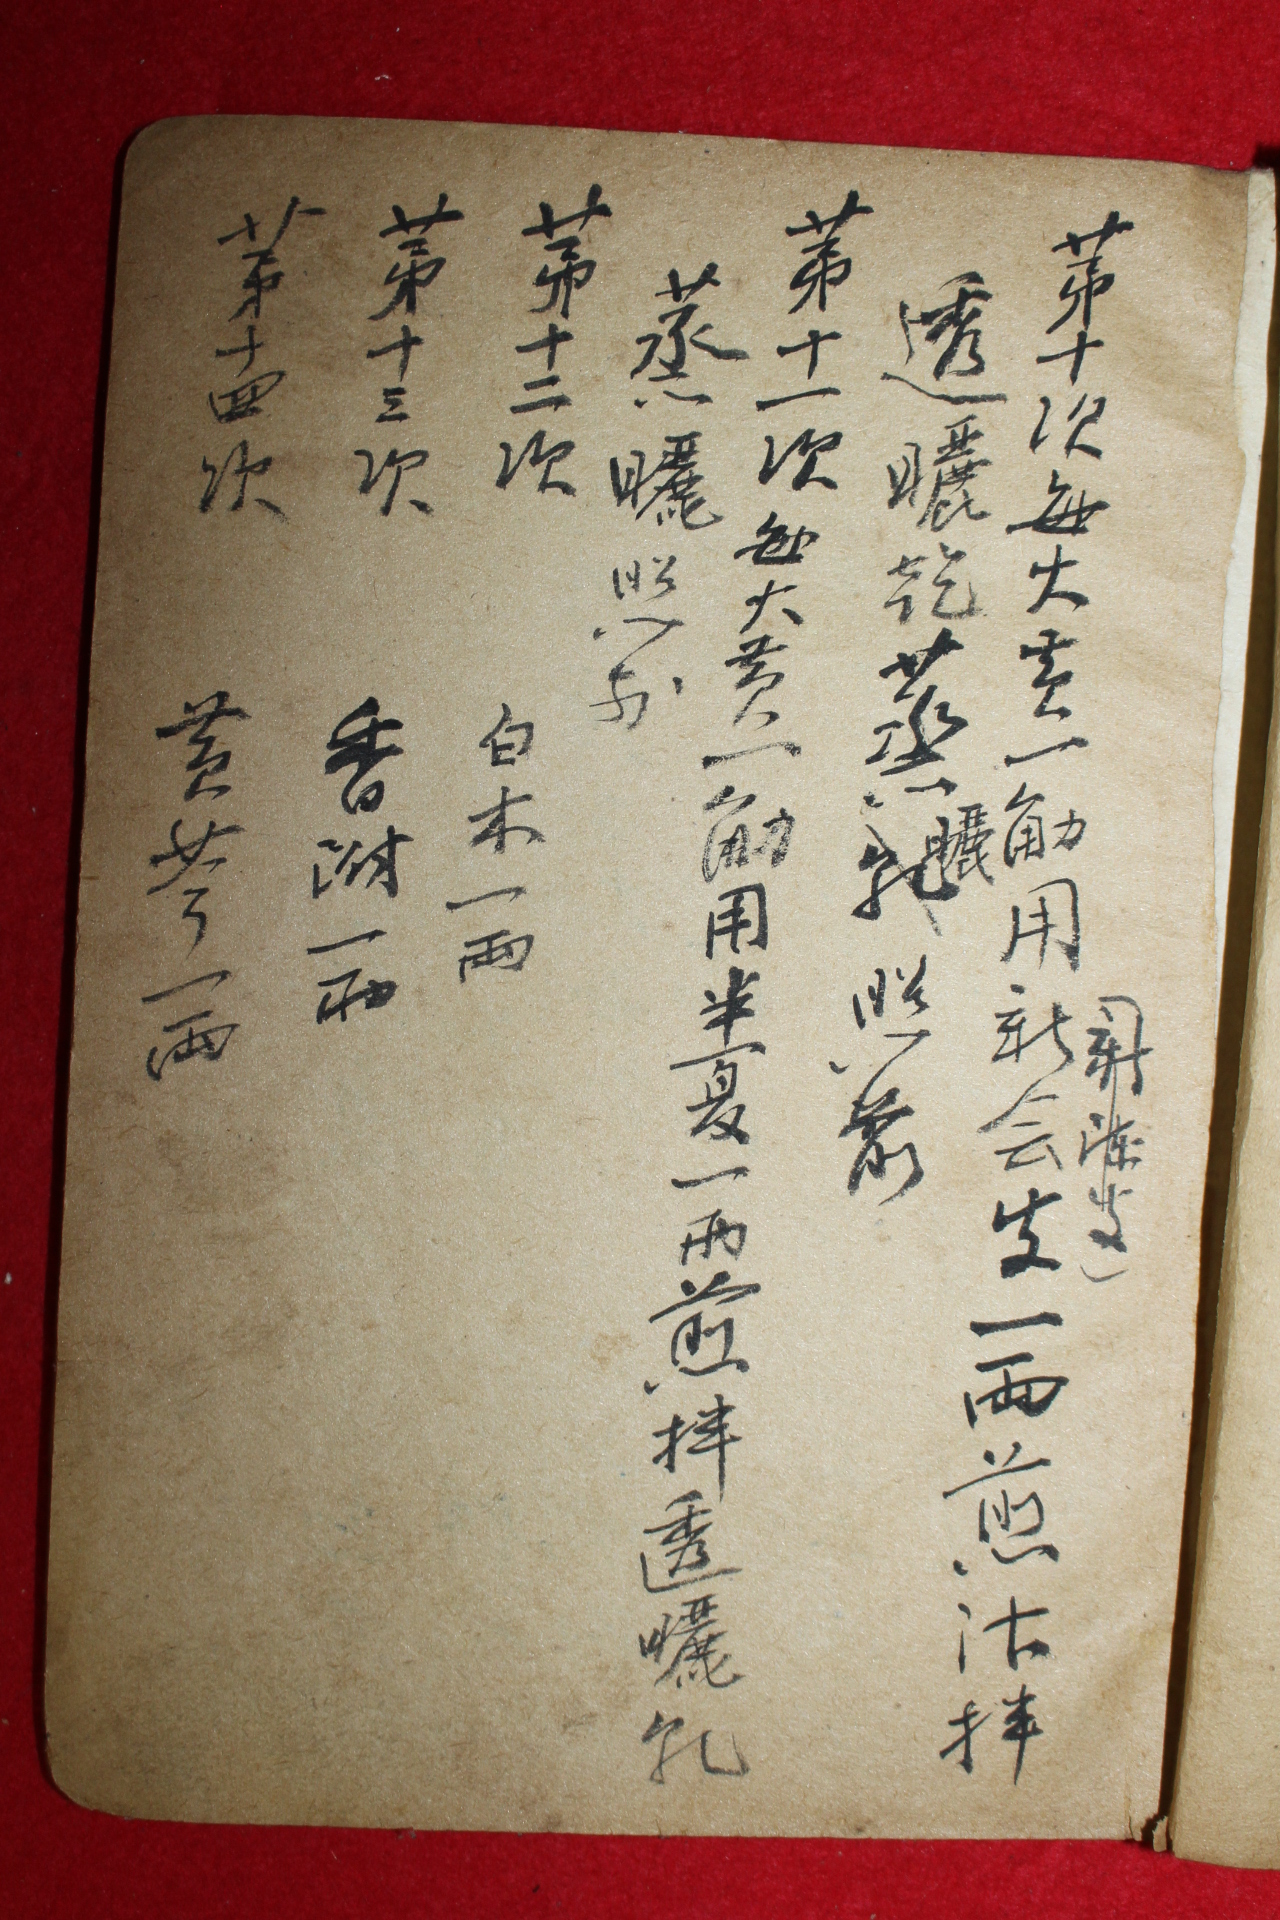 第十次每大黄一觔用新会皮一兩煎汁拌
(即陳皮)
透曬乾蒸曬乾照前
第十一次每大黄一觔用半夏一兩煎拌透曬乾
蒸曬照前
第十二次 白术一兩
第十三次 香附一兩
第十四次 黄芩一兩